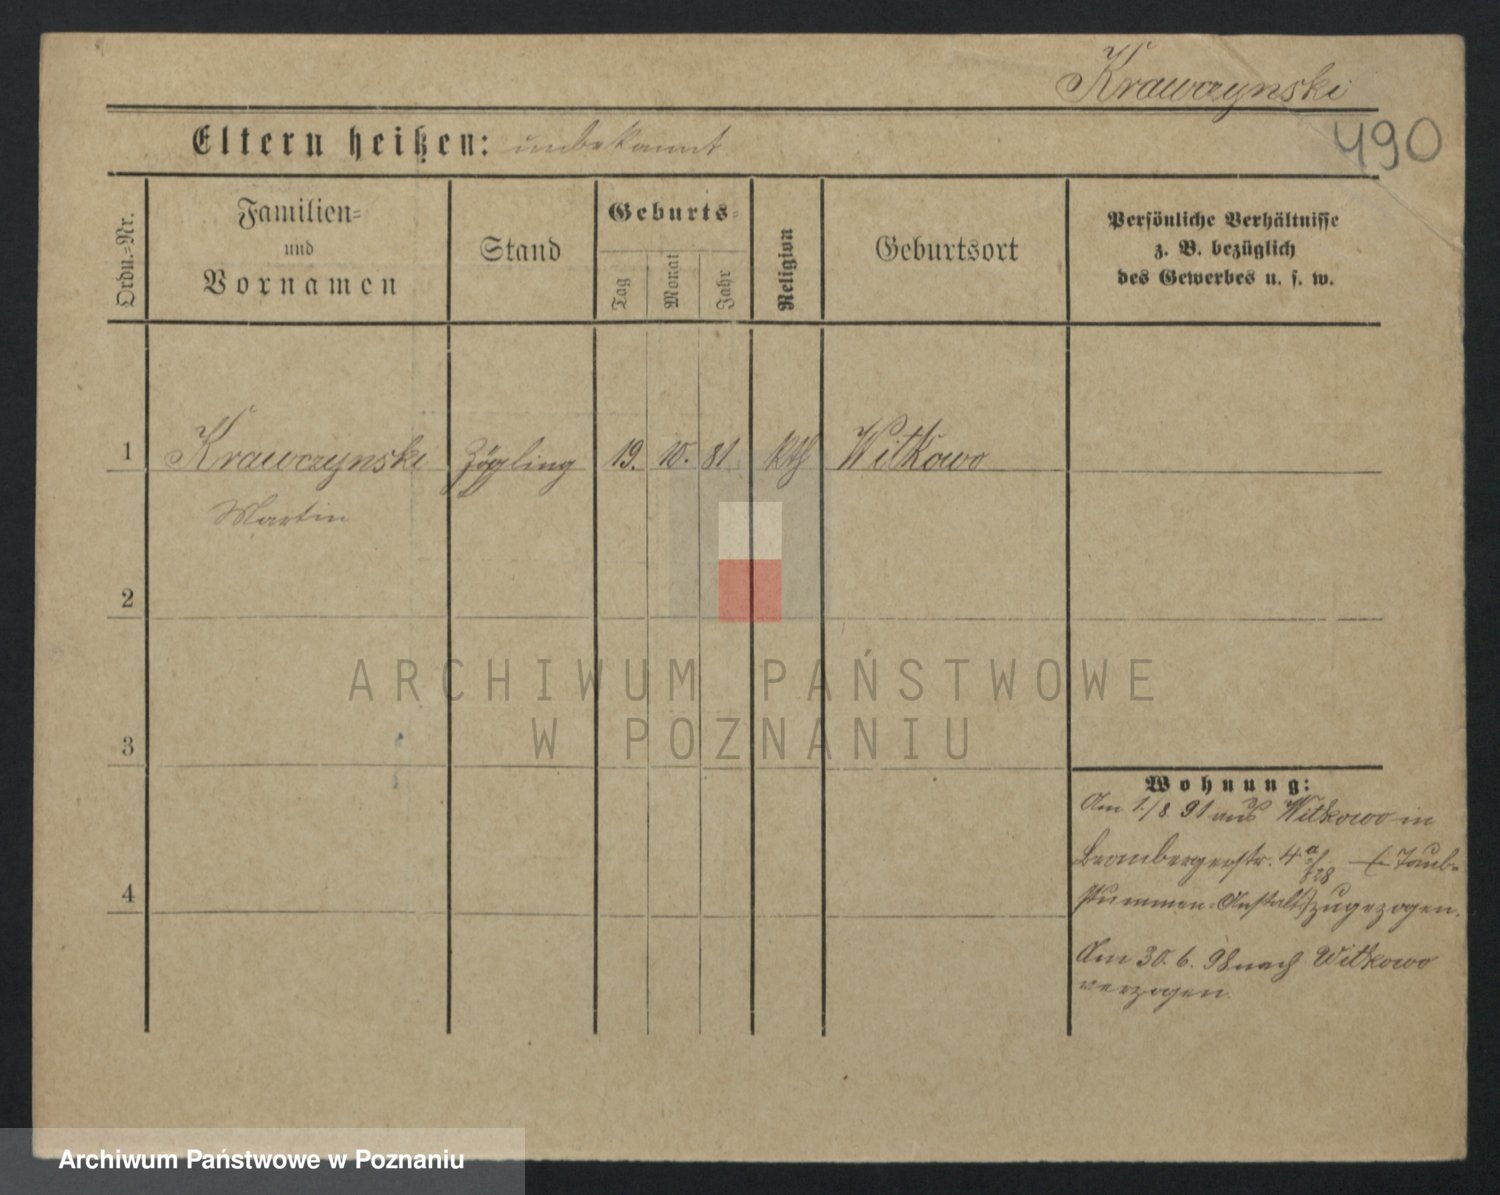 Krawczynski
490
Eltern heißen: unbekannt
Ordn.=Nr.
Familien=
und
Vornamen
Stand
Geburts=
Tag
Monat
Jahr
Religion
Geburtsort
Persönliche Verhältnisse
z. B. bezüglich
des Gewerbes u. s. w.
1 Krawczynski Zögling 19. 10. 81 kth Witkowo
Martin
2
ARCHIWUM PAŃSTWOWE
W POZNANIU
3
Wohnung:
Am 1./8. 91 aus Witkowo in
Brombergerstr. 4 a (Taub-
4
stummen-Anstalt) zugezogen.
Am 30. 6. 98 nach Witkowo
verzogen.
Archiwum Państwowe w Poznaniu